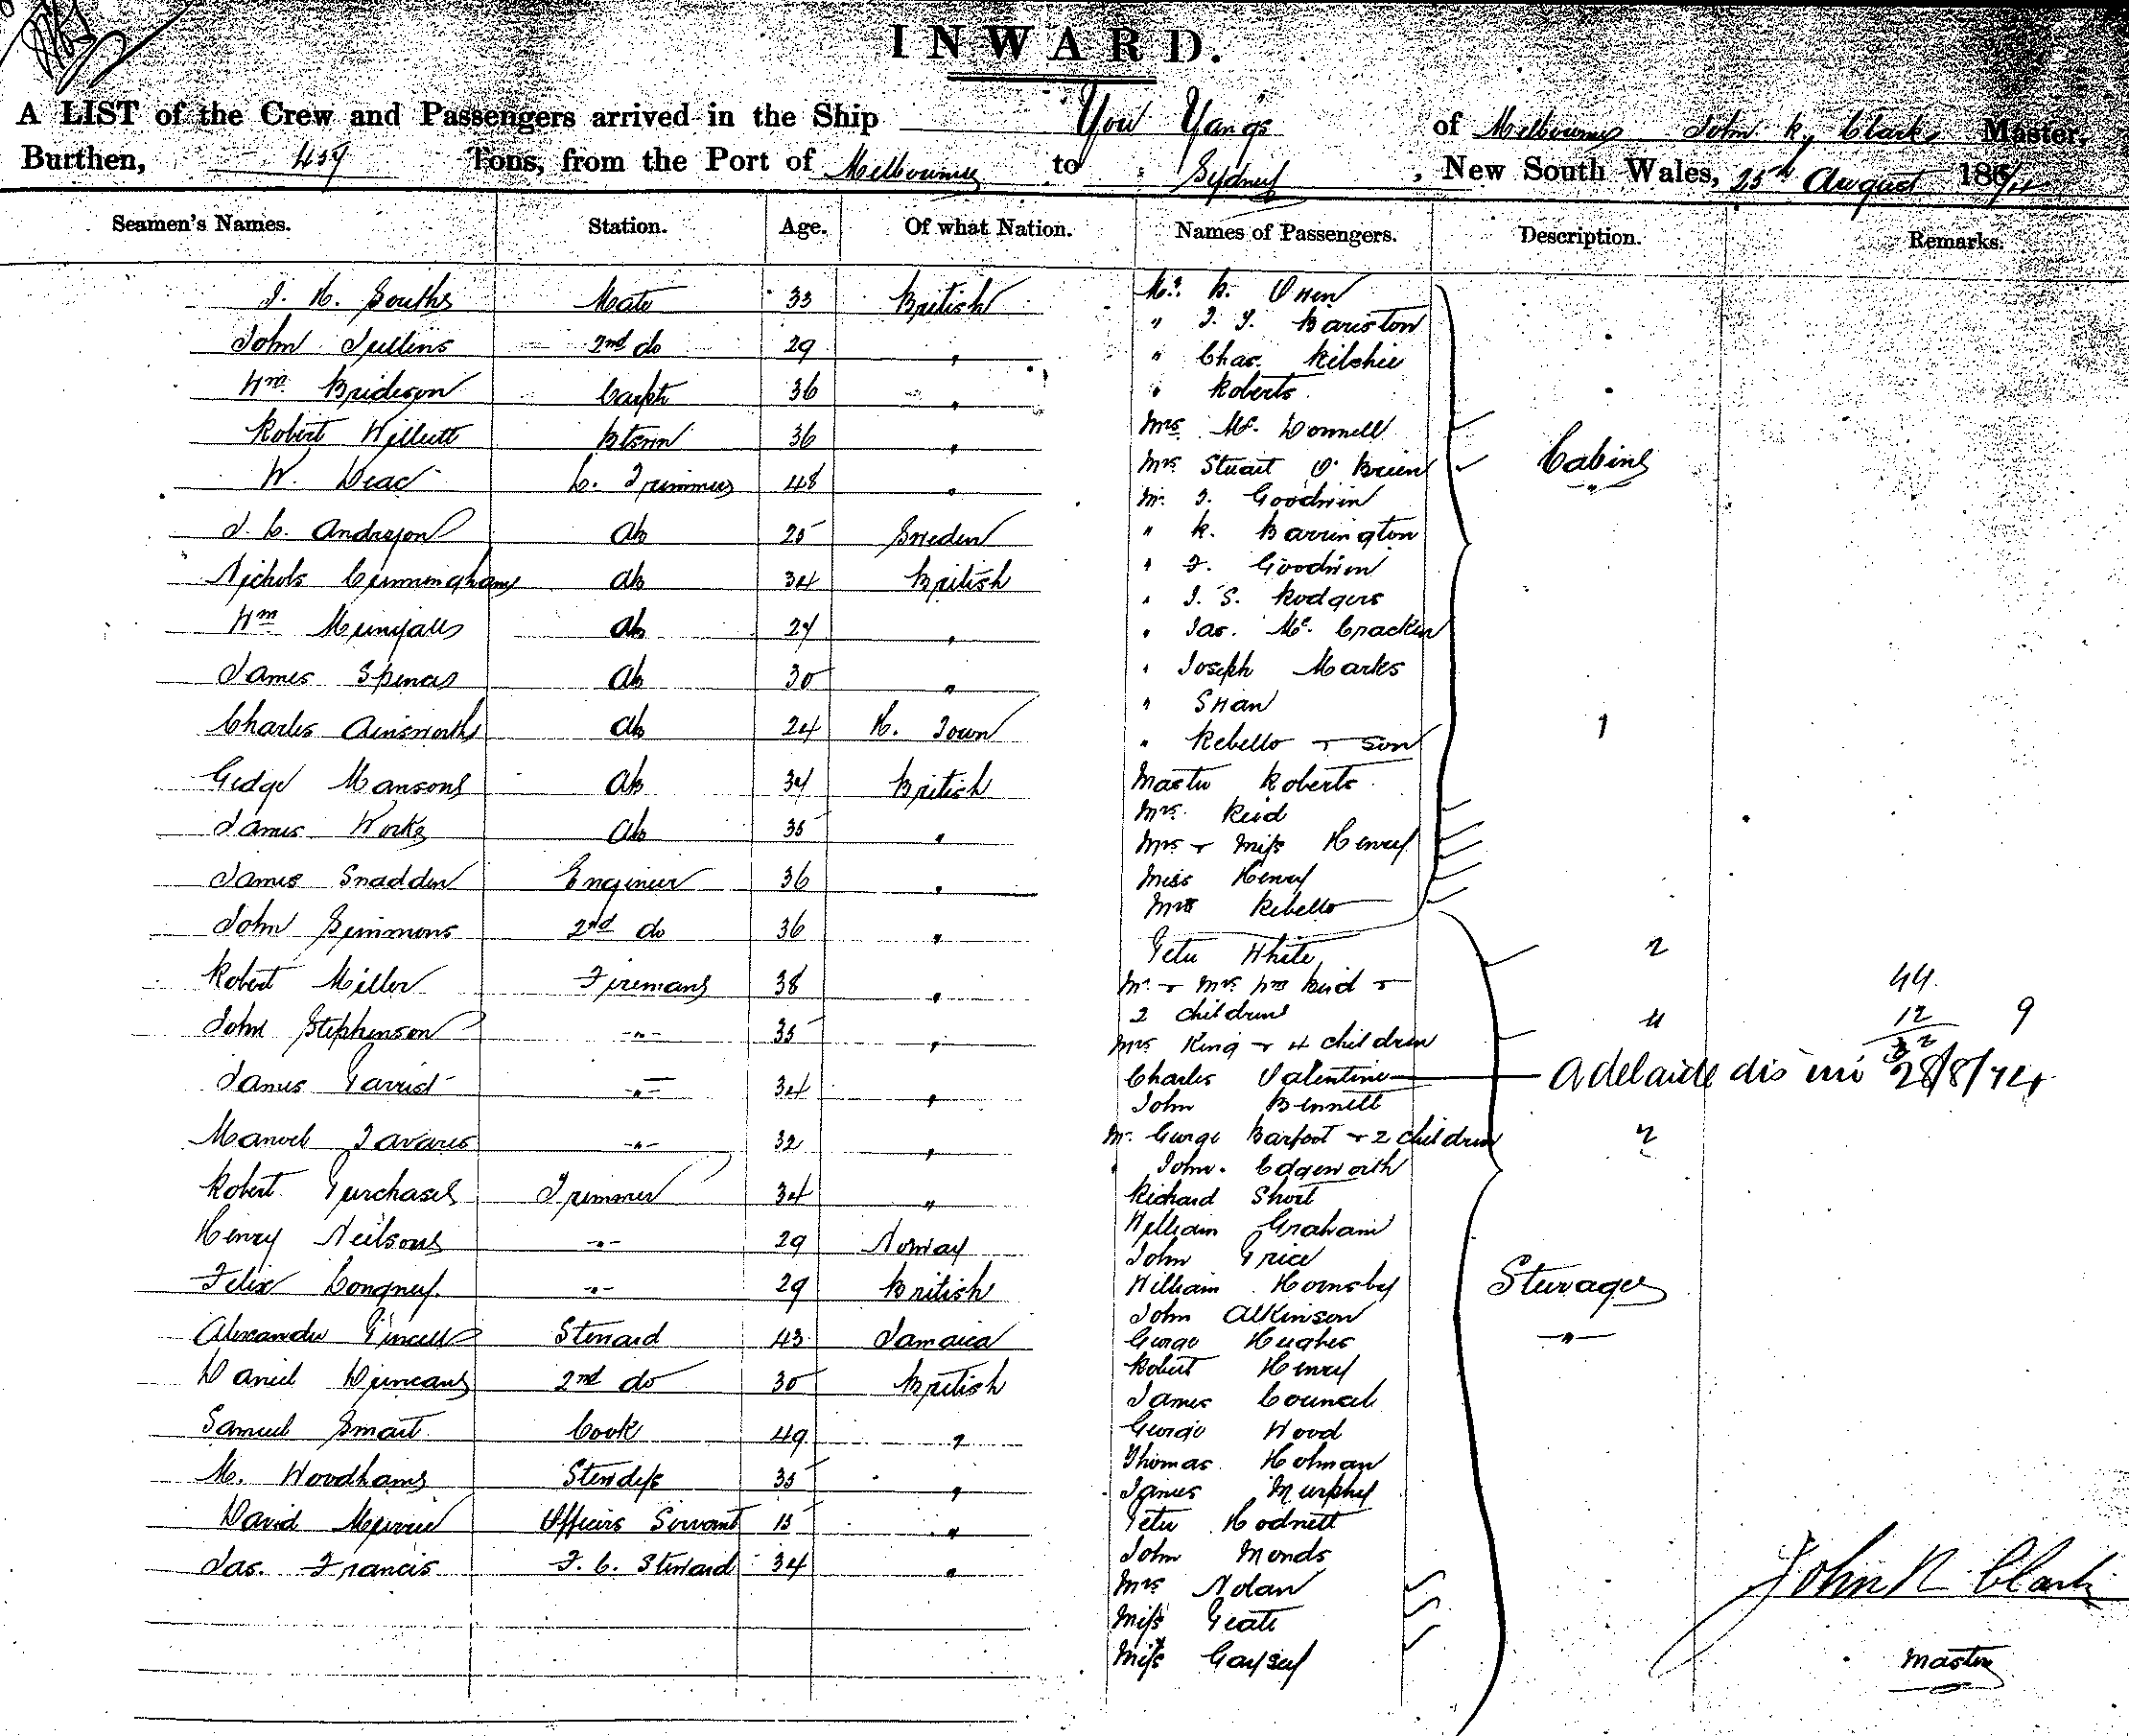 INWARD.
A LIST of the Crew and Passengers arrived in the Ship You Yangs of Melbourne John R. Clark Master,
Burthen, 459 Tons, from the Port of Melbourne to Sydney, New South Wales, 25th August 1864
Seamen's Names. Station. Age. Of what Nation. Names of Passengers. Description. Remarks.
Mate 33 British Mr. Owen
John 2nd do 29 " " Chas. Ritchie
Wm Brideson Carptr 36 " " Roberts
Robert Willett 36 " Mrs. Mc. Donnell
W. L. Trimmer 48 " Mrs Stuart O'Brien Cabin
Mr. J. Goodwin
J. C. Anderson Ab 25 Sweden " R. Barrington
Nichols Cunningham Ab 34 British " F. Goodwin
" J. S. Rodgers
Wm Ab 27 " " Jas. Mc. Cracken
James Spence Ab 30 " " Joseph Marks
" Swan
Charles Ainsworth Ab 24 H. Town " Rebello + son 1
Manson Ab 34 British Master Roberts
James Works Ab 35 " Mrs. Reid
Mrs + Miss Henry
James Snadden Engineer 36 " Miss Henry
John Simmons 2nd do 36 " Mrs Rebello
Peter White 2
Robert Miller Fireman 38 " Mr. + Mrs Wm Reid + 44
2 children
John Stephenson -"- 35 " Mrs King + 4 children 4 12 9
32
James -"- 34 " Charles Valentine Adelaide 28/8/74
John Bennett
Manuel Tavares -"- 32 " Mr. George Barfoot + 2 children 2
" John. Edgeworth
Robert Purchase Trimmer 34 " Richard Short
Henry Neilson -"- 29 Norway William Graham
John Price
Felix Congney -"- 29 British William Hornsby Steerage
John Atkinson
Alexander Steward 43 Jamaica George Hughes -"-
Robert Henry
Daniel Duncan 2nd do 30 British James Council
Samuel Smart Cook 49 " George Wood
Thomas Holman
M. Woodhams Stewdess 35 " James Murphy
David Officers Servant 15 " Peter Hodnett
Jas. Francis F. C. Steward 34 " John Monds
Mrs Nolan
Miss Geate
Miss
John R Clark
Master